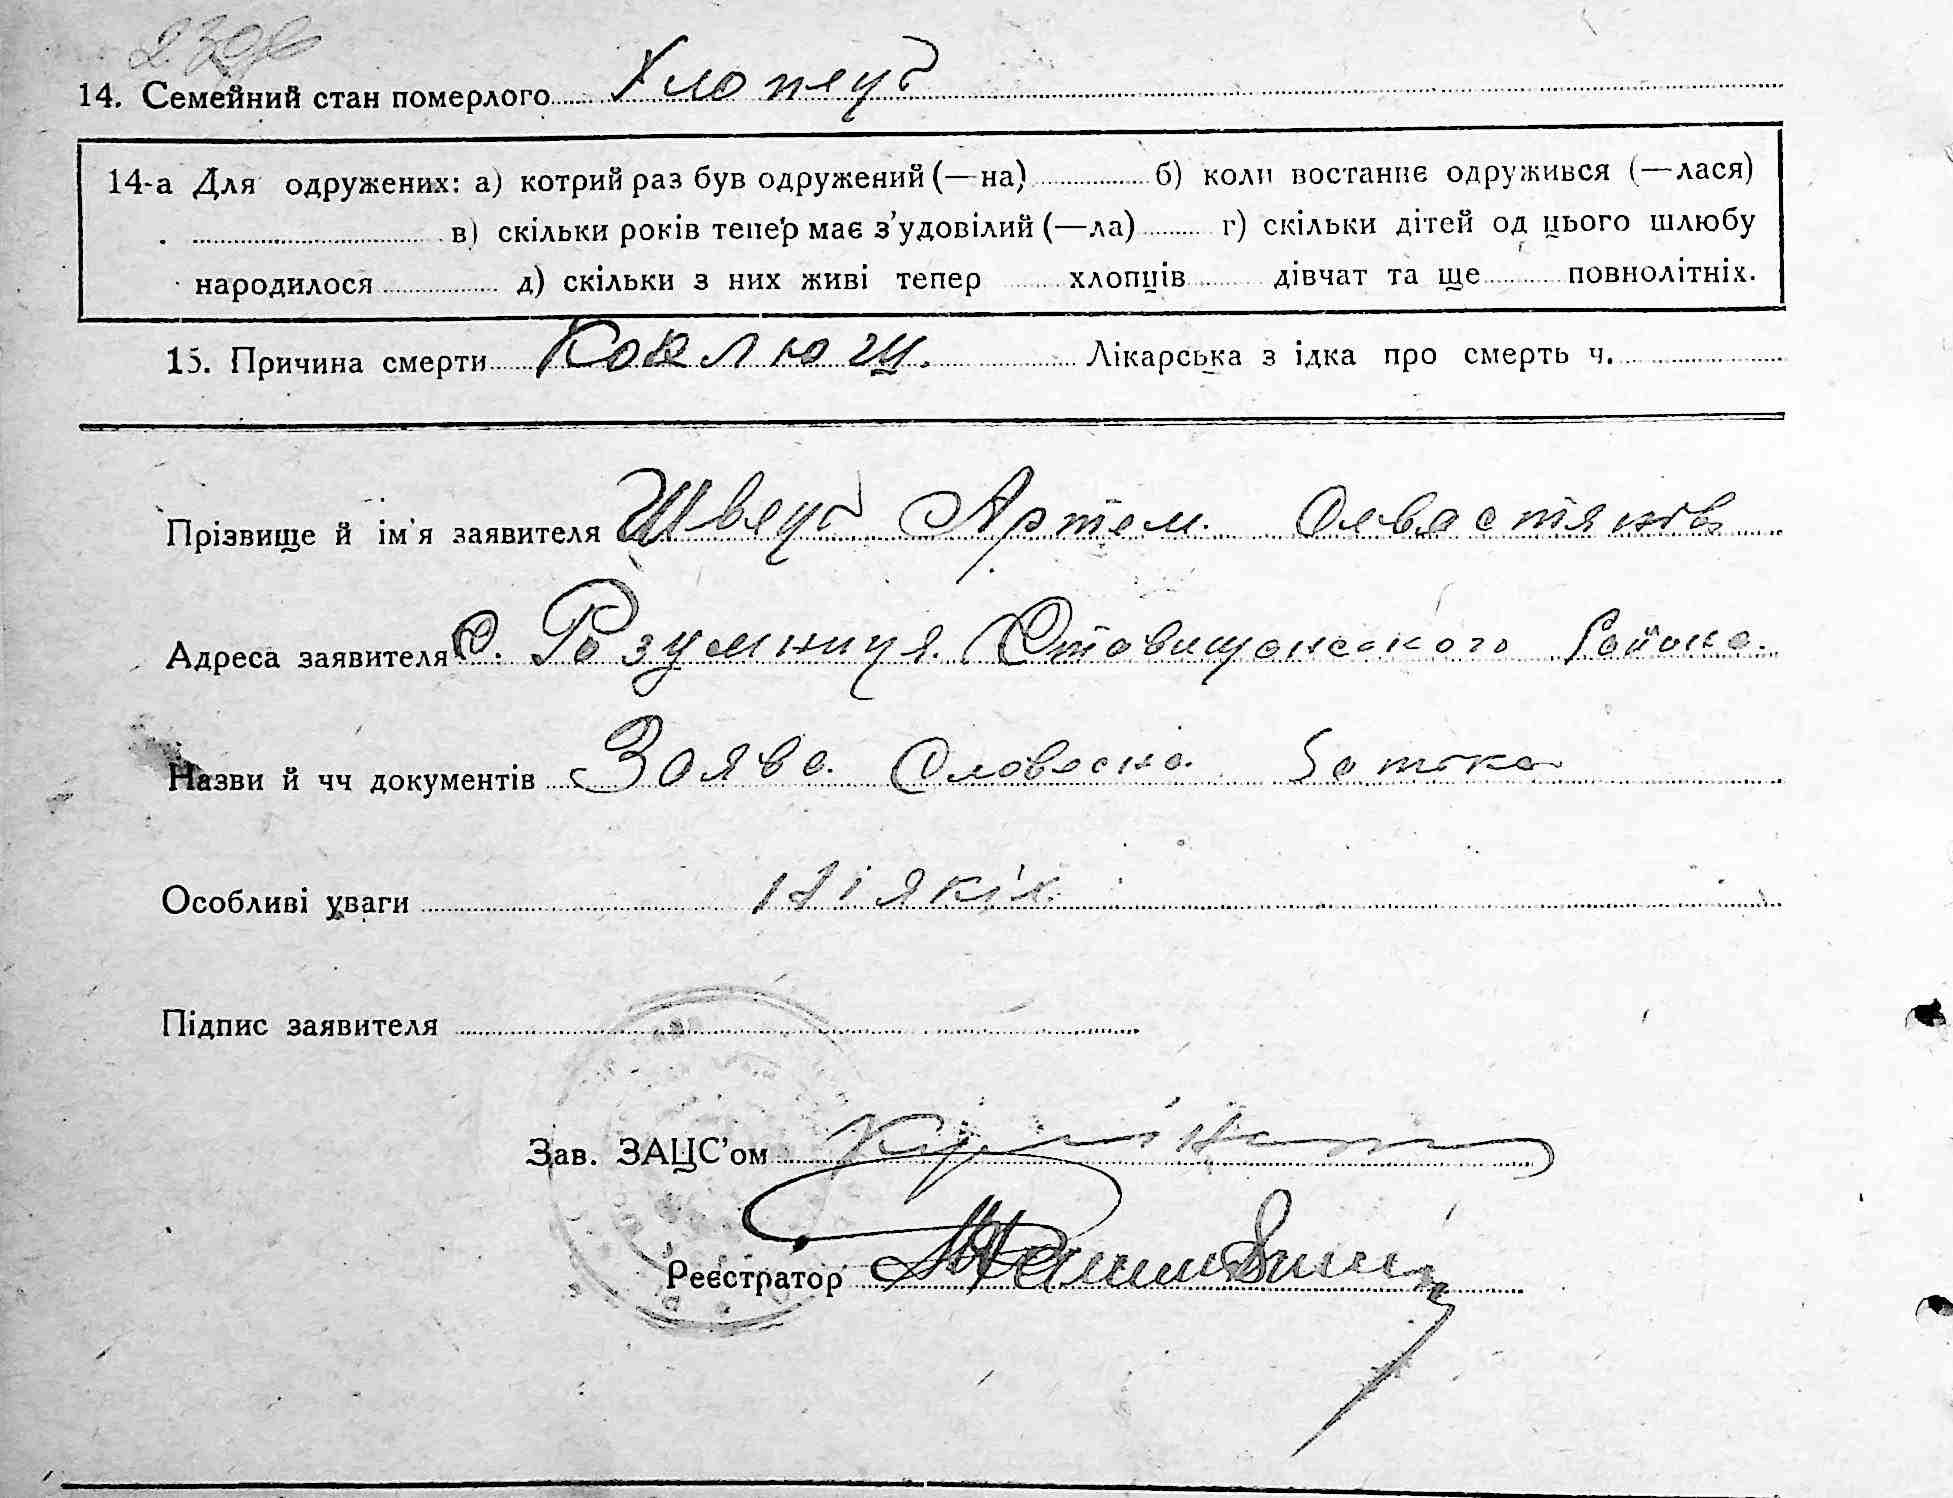 14. Семейний стан померлого Хлопець
14-а Для одружених: а) котрий раз був одружений (—на) б) коли востаннє одружився (—лася)
в) скільки років тепер має з'удовілий (—ла) г) скільки дітей од цього шлюбу
народилося д) скільки з них живі тепер хлопців дівчат та ще повнолітніх.
15. Причина смерти Коклюш. Лікарська з ідка про смерть ч.
Прізвище й ім'я заявителя Швець Артем
Адреса заявителя С. Розумниця Ставищанського Района.
Назви й чч документів Заява Словесна батька
Особливі уваги Ніякіх.
Підпис заявителя
Зав. ЗАЦС'ом
Реєстратор